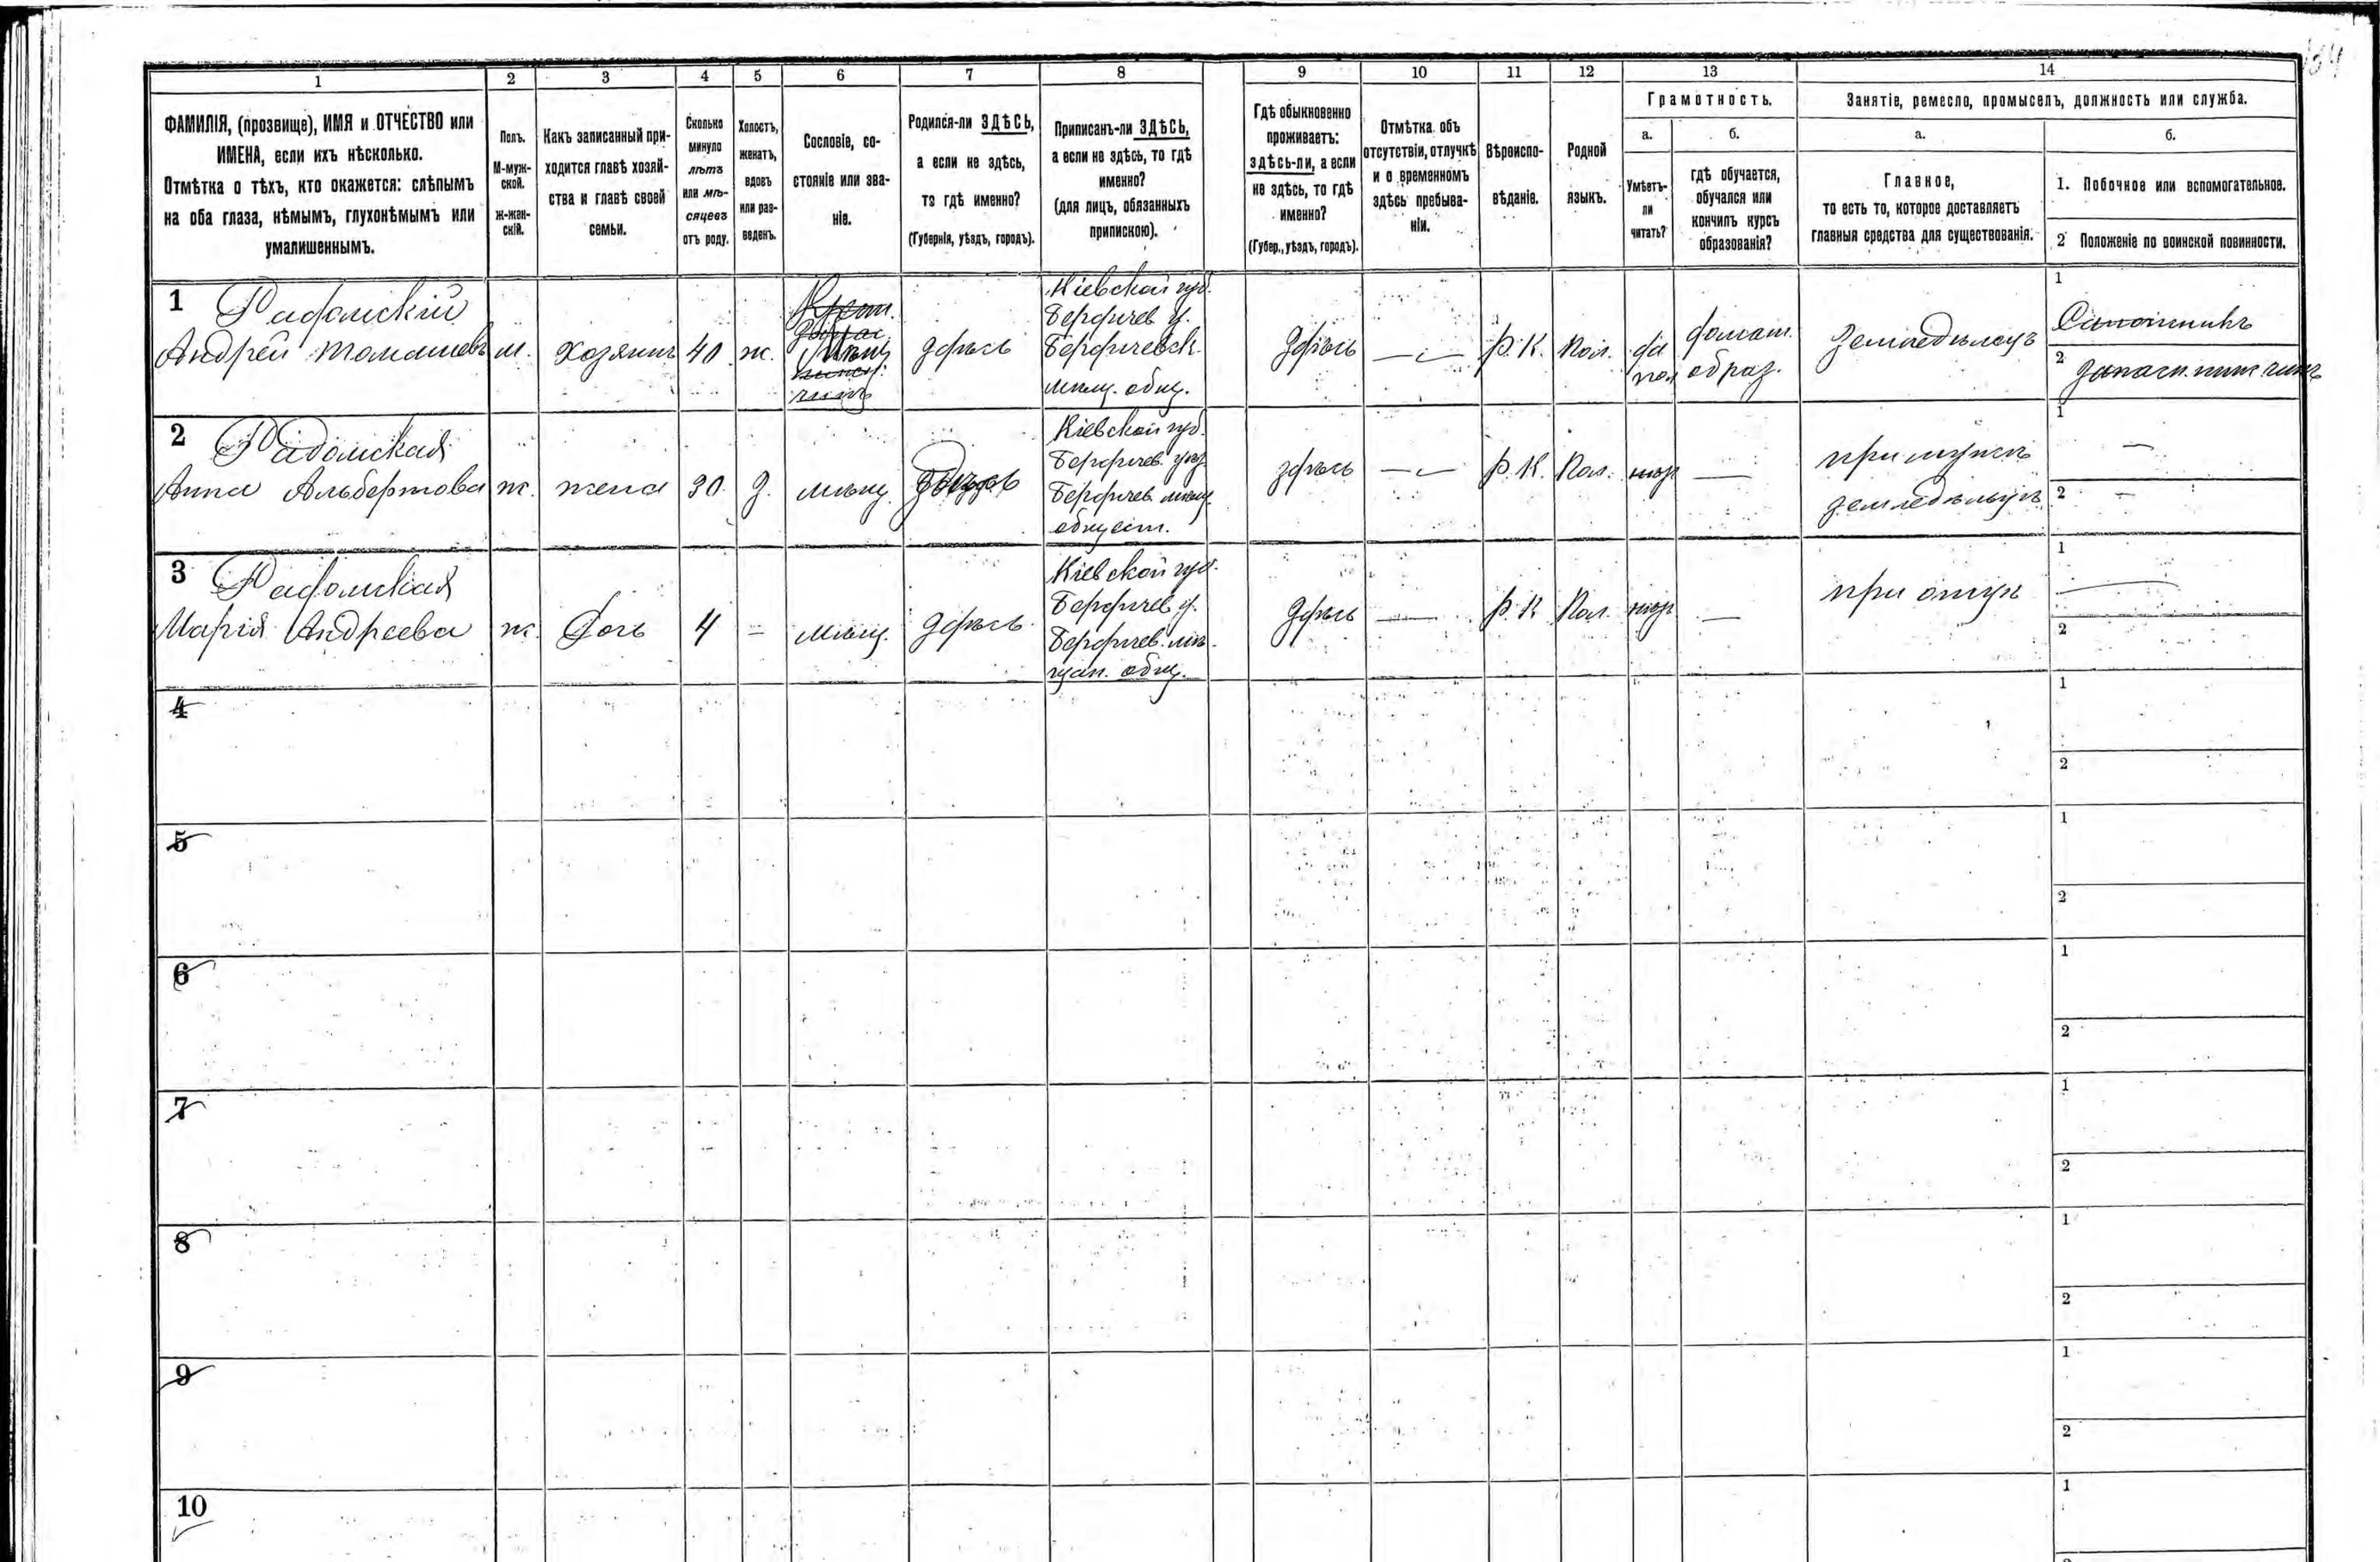 134
1 2 3 4 5 6 7 8 9 10 11 12 13 14
ФАМИЛІЯ, (прозвище), ИМЯ и ОТЧЕСТВО или
ИМЕНА, если ихъ нѣсколько.
Отмѣтка о тѣхъ, кто окажется: слѣпымъ
на оба глаза, нѣмымъ, глухонѣмымъ или
умалишеннымъ.
Полъ.
М-муж-
ской.
Ж-жен-
скій.
Какъ записанный при-
ходится главѣ хозяй-
ства и главѣ своей
семьи.
Сколько
минуло
лѣтъ
или мѣ-
сяцевъ
отъ роду.
Холостъ,
женатъ,
вдовъ
или раз-
веденъ.
Сословіе, со-
стояніе или зва-
ніе.
Родился-ли ЗДѢСЬ,
а если не здѣсь,
то гдѣ именно?
(Губернія, уѣздъ, городъ).
Приписанъ-ли ЗДѢСЬ,
а если не здѣсь, то гдѣ
именно?
(для лицъ, обязанныхъ
припискою).
Гдѣ обыкновенно
проживаетъ:
здѣсь-ли, а если
не здѣсь, то гдѣ
именно?
(Губер., уѣздъ, городъ).
Отмѣтка объ
отсутствіи, отлучкѣ
и о временномъ
здѣсь пребыва-
ніи.
Вѣроиспо-
вѣданіе.
Родной
языкъ.
Грамотность.
а.
Умѣетъ-
ли
читать?
б.
гдѣ обучается,
обучался или
кончилъ курсъ
образованія?
Занятіе, ремесло, промыселъ, должность или служба.
а.
Главное,
то есть то, которое доставляетъ
главныя средства для существованія.
б.
1. Побочное или вспомогательное.
2 Положеніе по воинской повинности.
1 Радомскій
Андрей Томашевъ
м.
хозяинъ
40
ж.
мѣщ
здѣсь
Кіевской губ.
Бердичев у.
Бердичевск.
мѣщ. общ.
здѣсь
—
Р. К.
Пол.
да
пол
домаш.
образ.
Земледѣлецъ
1
Сапожникъ
2
запасн. ниж чинъ
2 Радомская
Анна Альбертова
ж.
жена
30
з.
мѣщ.
Кіевской губ.
Бердичев. уѣз.
Бердичев. мѣщ.
общест.
здѣсь
—
Р. К.
Пол.
нѣтъ
—
при мужѣ
земледѣльцѣ
1
—
2
—
3 Радомская
Марія Андреева
ж.
Дочь
4
–
мѣщ.
здѣсь
Кіевской губ.
Бердичев у.
Бердичев. мѣ-
щан. общ.
здѣсь
—
Р. К
Пол.
нѣтъ
—
при отцѣ
1
—
2
4
1
2
5
1
2
6
1
2
7
1
2
8
1
2
9
1
2
10
1